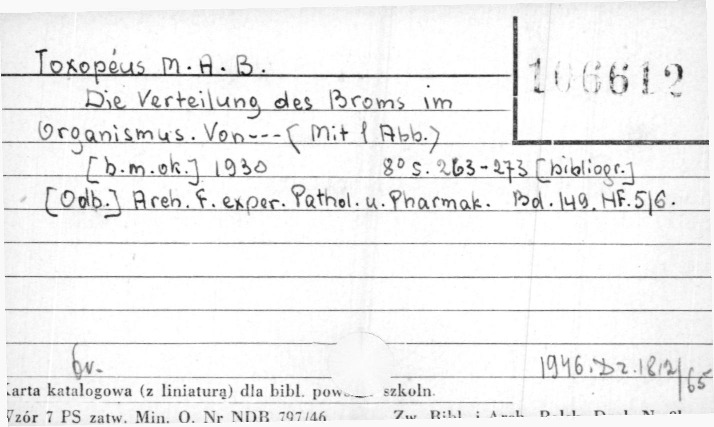 Toxopéus M.A.B.
106612
Die Verteilung des Broms im
Organismus. Von--- (Mit 1 Abb.)
[b.m.ok.] 1930 8° s. 263-273 [bibliogr.]
[Odb.] Arch. f. exper. Pathol. u. Pharmak. Bd. 149. Hf. 5/6.
br.
1946. Dz. 1812/65
Karta katalogowa (z liniaturą) dla bibl. szkoln.
Wzór 7 PS zatw. Min. O. Nr NDB 797/46